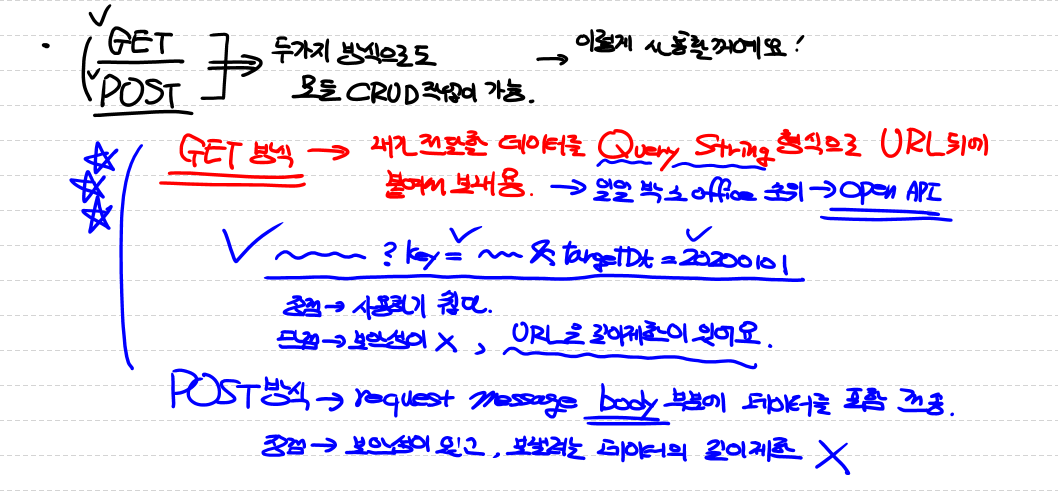 GET
POST
두가지 방식으로도
모든 CRUD 작업이 가능.
→ 이렇게 사용할꺼에요!
GET 방식 → 내가 전달할 데이터를 Query String 형식으로 URL뒤에
붙여서 보내용. → 일일 박스 office 순위 → Open API
? key = & targetDt = 20200101
장점 → 사용하기 쉽다.
단점 → 보안성이 X, URL은 길이제한이 있어요.
POST방식 → request message body 부분에 데이터를 포함 전송.
장점 → 보안성이 있고, 보낼려는 데이터의 길이제한 X